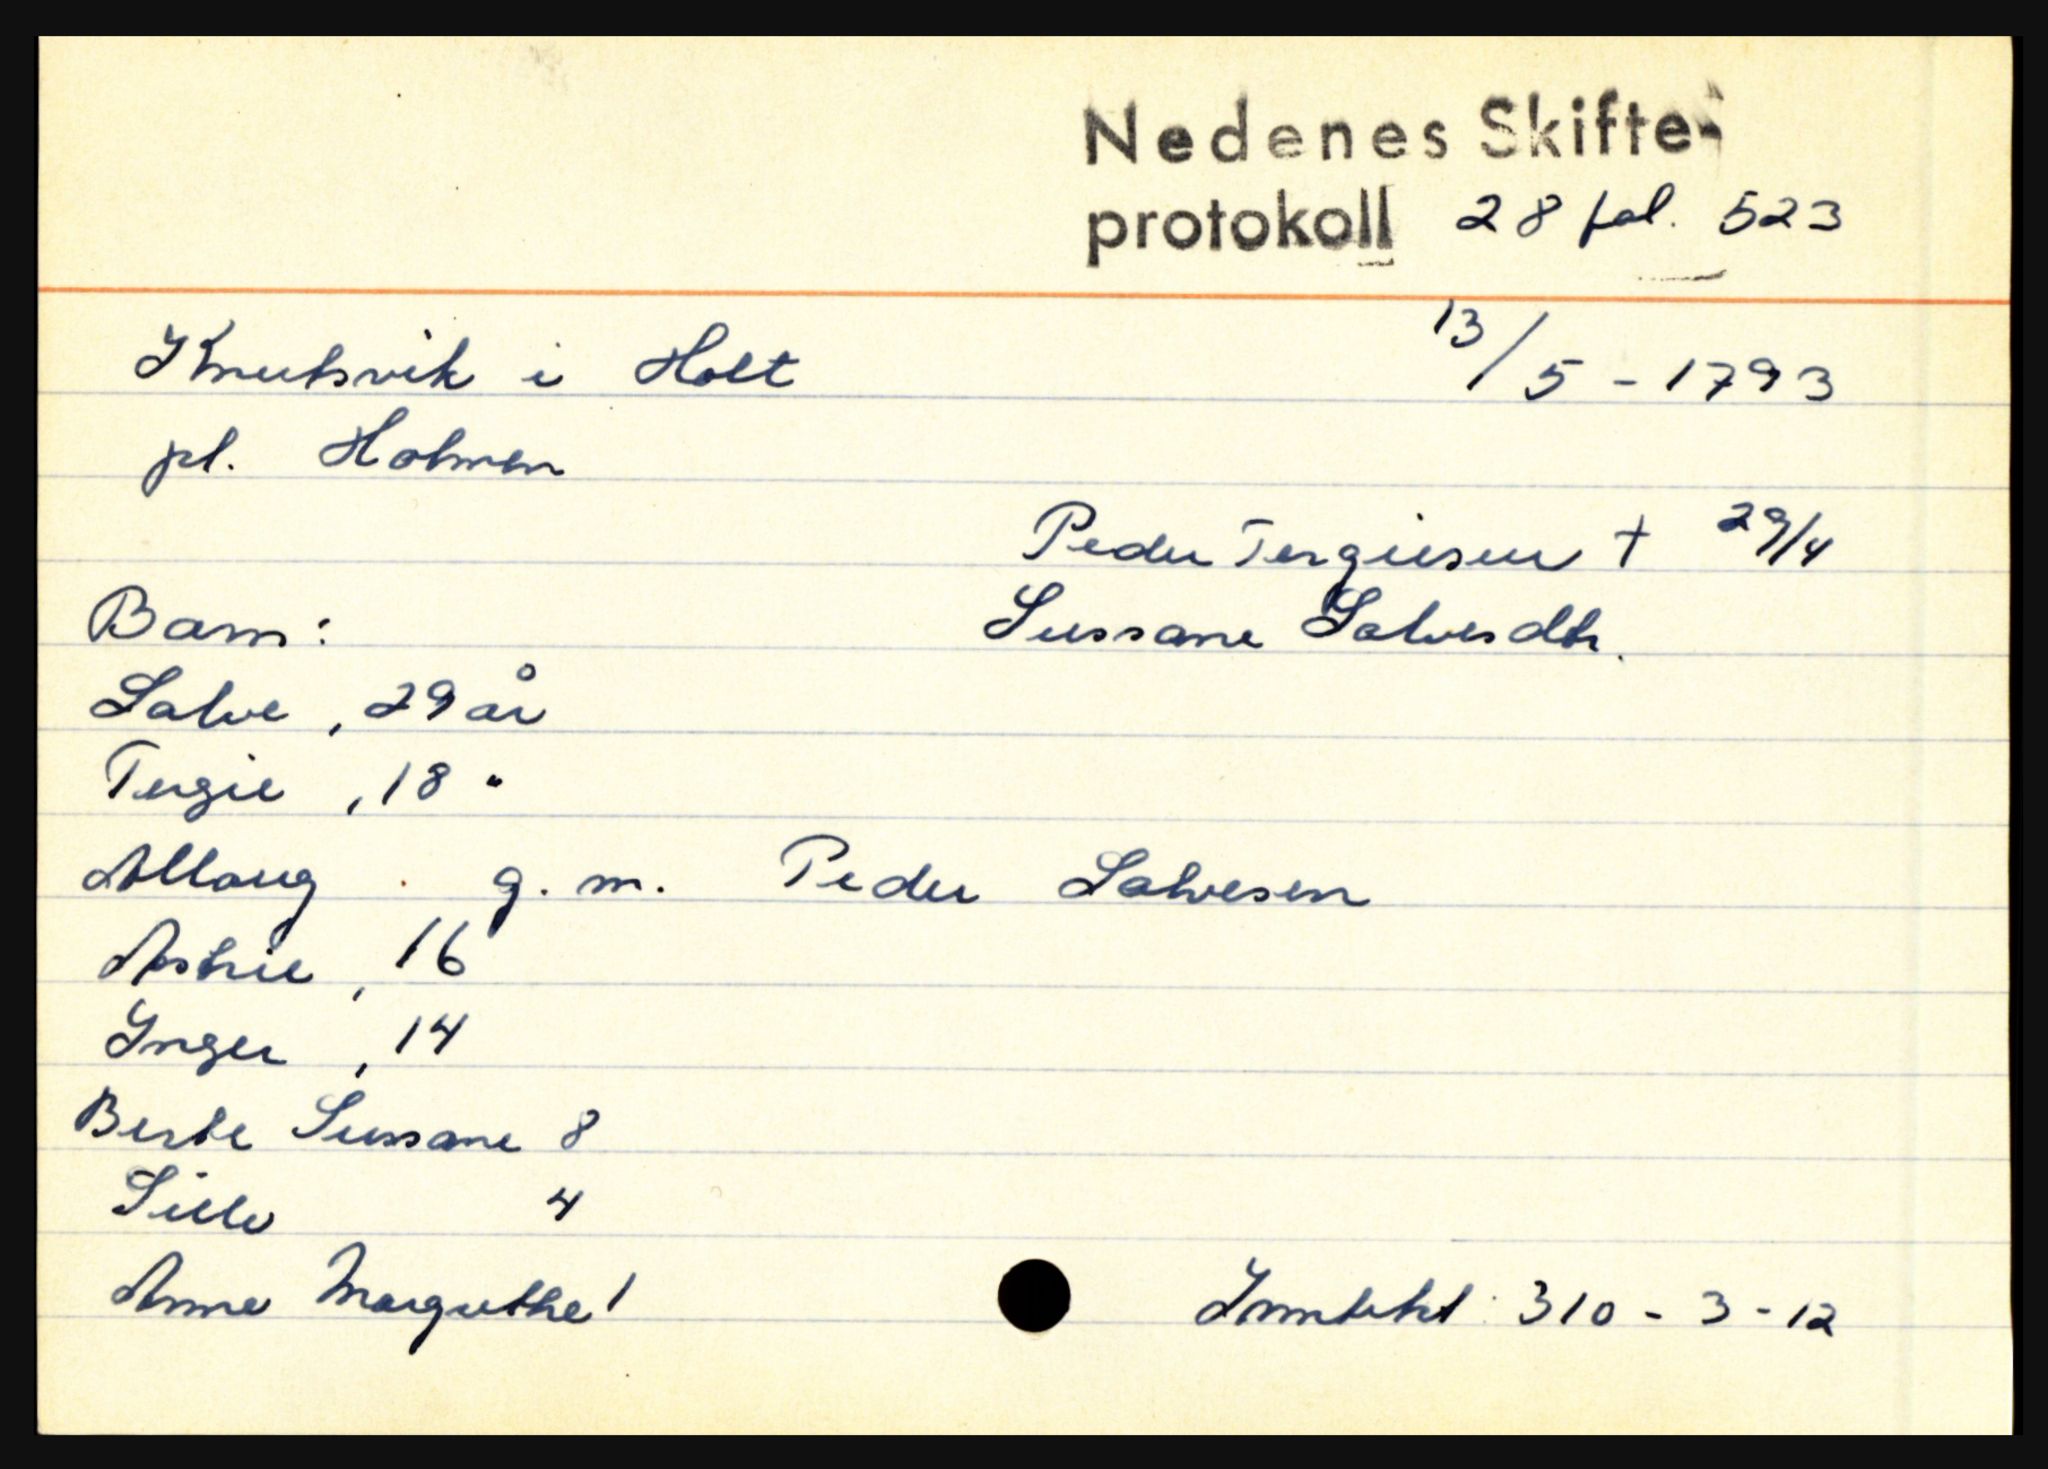 Nedenes Skifte-
protokoll 28 fol. 523
Knutsvik i Holt 13/5 - 1793
pl. Holmen
Peder Tergiesen † 29/4
Barn: Sussane Salvesdtr.
Salve , 29 år
Tergie , 18 "
Allaug . g. m. Peder Salvesen
Astrie , 16
Inger , 14
Berte Sussane 8
Sille 4
Anne Margrethe 1 Inntekt : 310 - 3 - 12